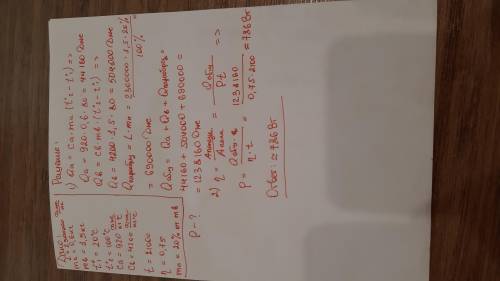 Дано:
mа = 0,6 кг
mв = 1,5 кг
t°₁ = 20°C
t°₂ = 100°C
Cа = 920 Дж/кг°C
Cв = 4200 Дж/кг°C
t = 2100c
η = 0,75
mп = 20% от mв
P - ?
Решение:
1) Qа = Cа · mа (t°₂ - t°₁) =>
Qа = 920 · 0,6 · 80 = 44160 Дж
Qв = Cв · mв · (t°₂ - t°₁) =>
Qв = 4200 · 1,5 · 80 = 504000 Дж
= L · mп = 2300000 · 1,5 · 20% / 100% =
= 690000 Дж
Qобщ = Qа + Qв +
44160 + 504000 + 690000 =
= 1238160 Дж
2) η = / = Qобщ / Pt =>
P = Qобщ / η · t = 1238160 / 0,75 · 2100 = 786 Вт
Ответ: ≈ 786 Вт